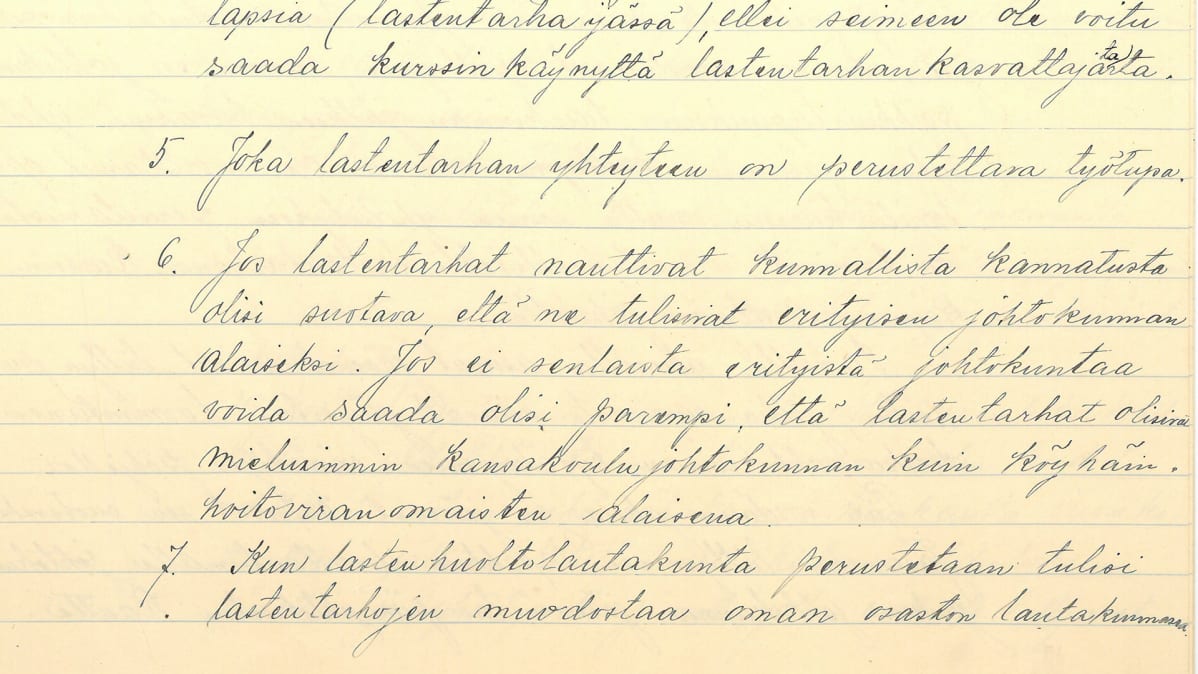 lapsia (lastentarha ijässä), ellei seimeen ole voitu
saada kurssin käynyttä lastentarhan kasvattajatarta.
5. Joka lastentarhan yhteyteen on perustettava työtupa.
6. Jos lastentarhat nauttivat kunnallista kannatusta
olisi suotava, että ne tulisivat erityisen johtokunnan
alaiseksi. Jos ei senlaista erityistä johtokuntaa
voida saada olisi parempi, että lastentarhat olisivat
mieluimmin kansakoulujohtokunnan kuin köyhäin-
hoitoviranomaisten alaisena.
7. Kun lastenhuoltolautakunta perustetaan tulisi
lastentarhojen muodostaa oman osaston lautakunnassa